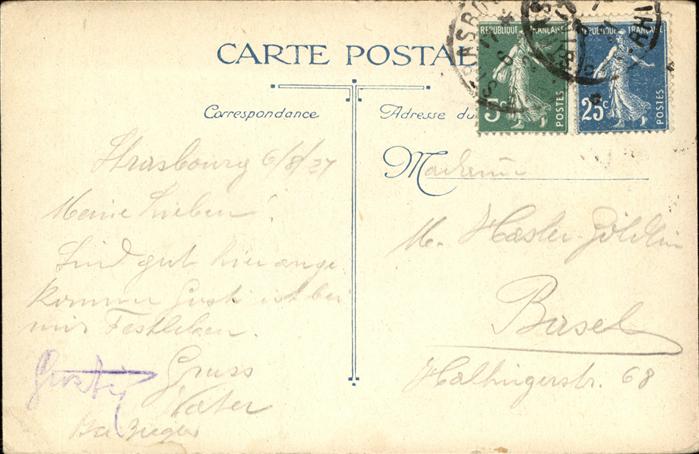 CARTE POSTALE
Correspondance
Adresse du
REPUBLIQUE FRANÇAISE
POSTES
5c
REPUBLIQUE FRANÇAISE
POSTES
25c
Strasbourg 6/8/27
Meine Lieben!
Sind gut hier ange
kommen Gusti ist bei
mir Festleben.
Gruss
Vater
Gusti
Madame
M. Hasler-Göldlin
Basel
Haltingerstr. 68